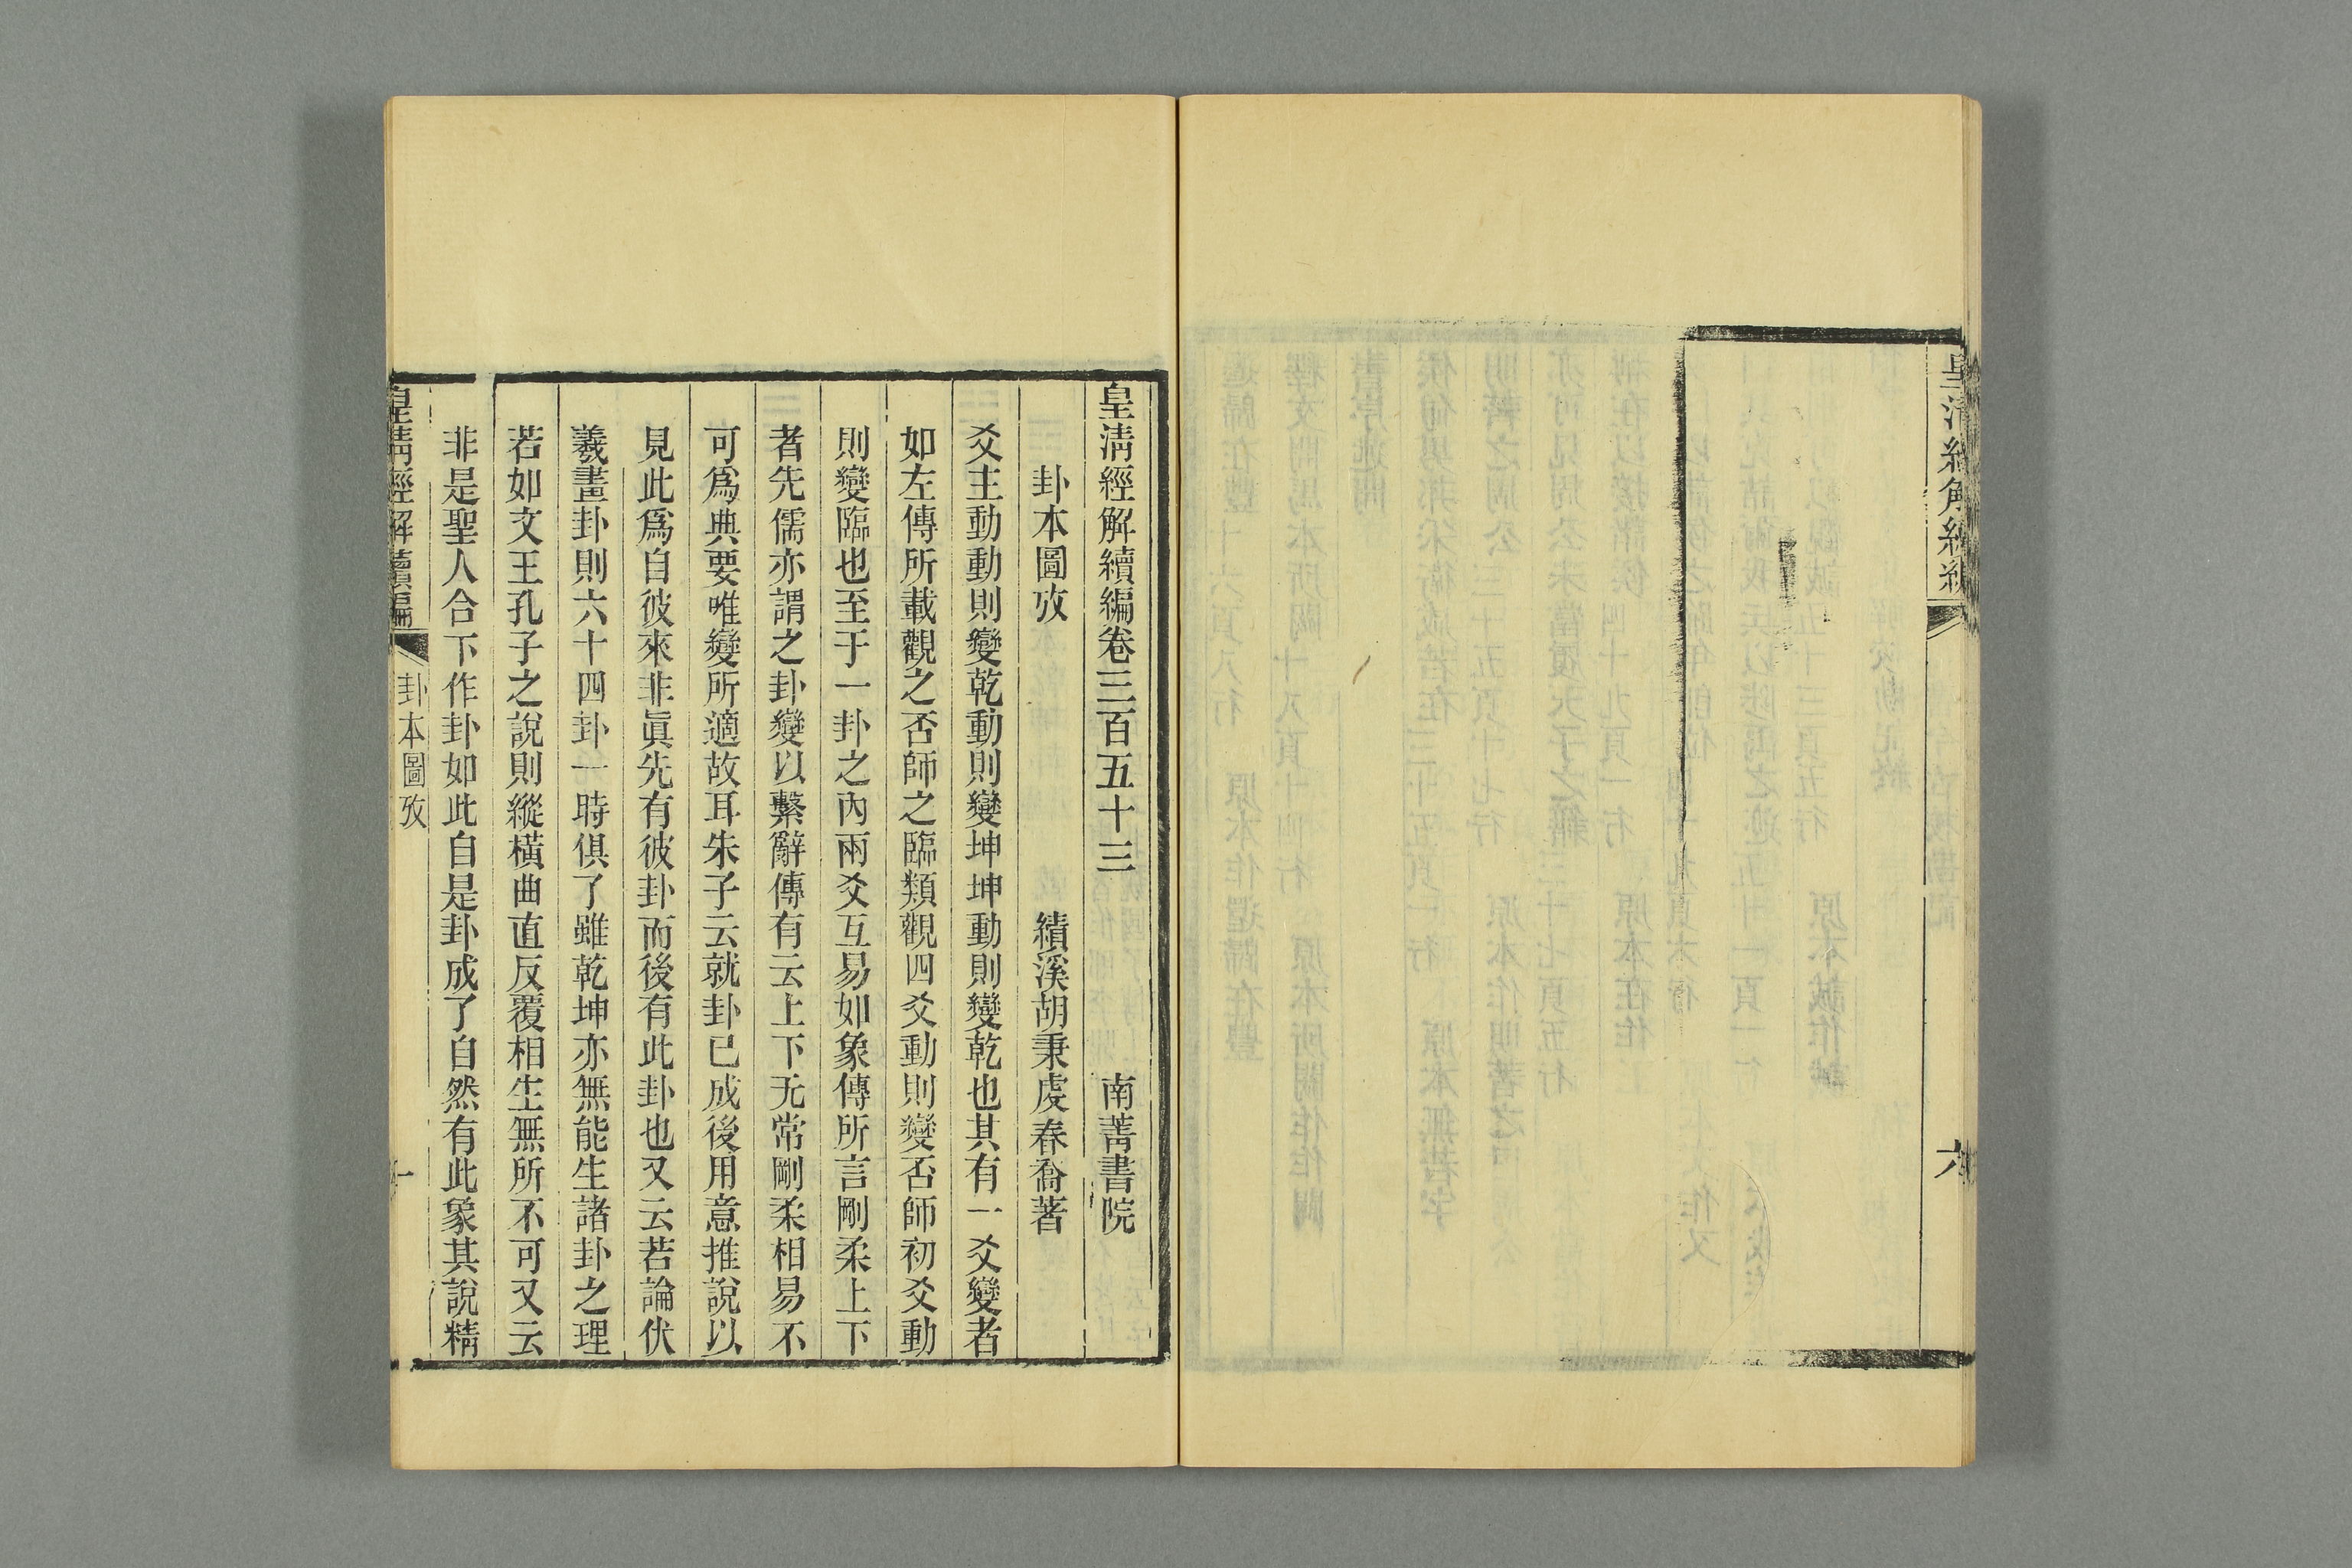 皇清經解續編
六
皇清經解續編卷三百五十三 南菁書院
卦本圖攷 績溪胡秉虔春喬著
爻主動動則變乾動則變坤坤動則變乾也其有一爻變者
如左傳所載觀之否師之臨類觀四爻動則變否師初爻動
則變臨也至于一卦之內兩爻互易如彖傳所言剛柔上下
者先儒亦謂之卦變以繫辭傳有云上下无常剛柔相易不
可爲典要唯變所適故耳朱子云就卦已成後用意推說以
見此爲自彼來非眞先有彼卦而後有此卦也又云若論伏
羲畫卦則六十四卦一時俱了雖乾坤亦無能生諸卦之理
若如文王孔子之說則縱橫曲直反覆相生無所不可又云
非是聖人合下作卦如此自是卦成了自然有此象其說精
皇清經解續編 卦本圖攷 一